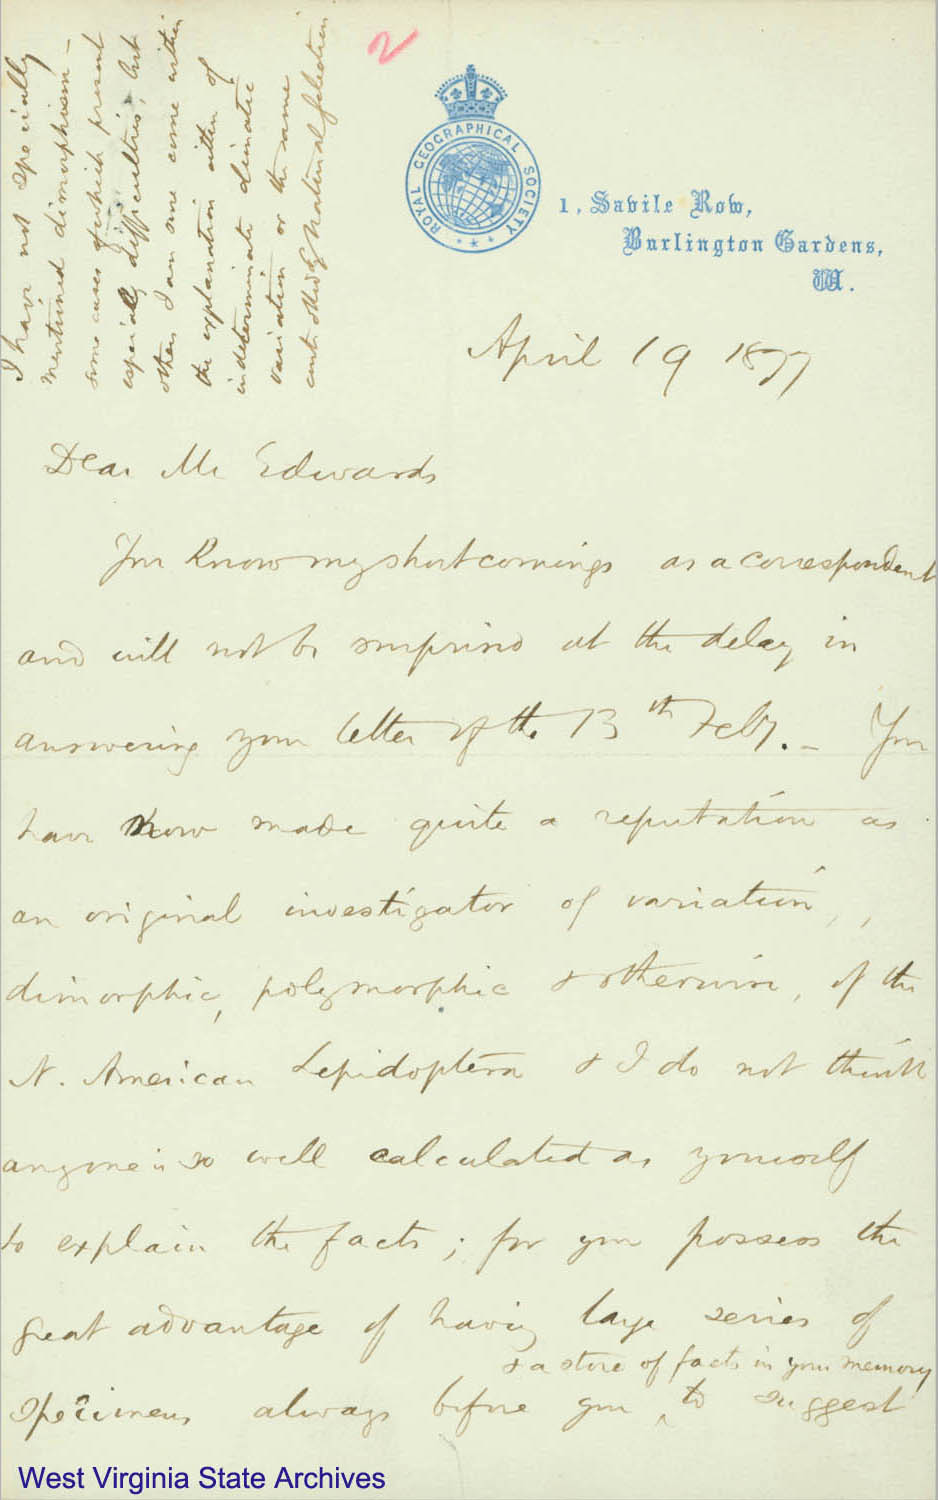 2
ROYAL GEOGRAPHICAL SOCIETY
1, Savile Row,
Burlington Gardens,
W.
April 19 1877
Dear Mr Edwards
You know my shortcomings as a correspondent
and will not be surprised at the delay in
answering your letter of the 13th Feby. – You
have now made quite a reputation as
an original investigator of variation,
dimorphic, polymorphic & otherwise, of the
N. American Lepidoptera & I do not think
anyone is so well calculated as yourself
to explain the facts; for you possess the
great advantage of having large series of
& a store of facts in your memory
specimens always before you ‸ to suggest
I have not specially
mentioned dimorphism –
some cases of which present
especially difficulties, but
others I am sure come within
the explanation either of
indeterminate climatic
variation or the same
by Natural Selection
West Virginia State Archives